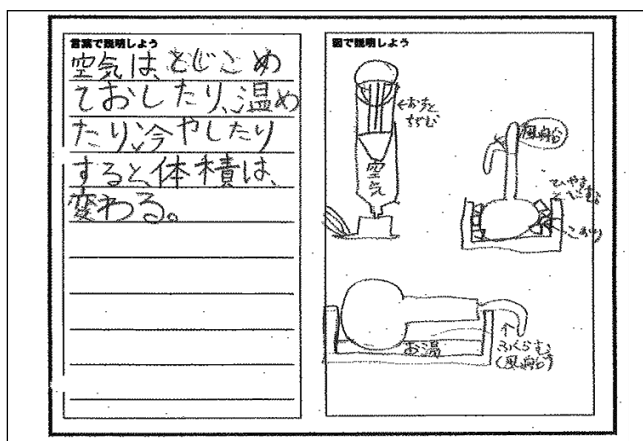 言葉で説明しよう
空気は、とじこめ
ておしたり、温め
たり、冷やしたり
すると、体積は、
変わる。
図で説明しよう
←おすと
ちぢむ
空気
風船
ひやすと
こおり
お湯
↑
ふくらむ
(風船)